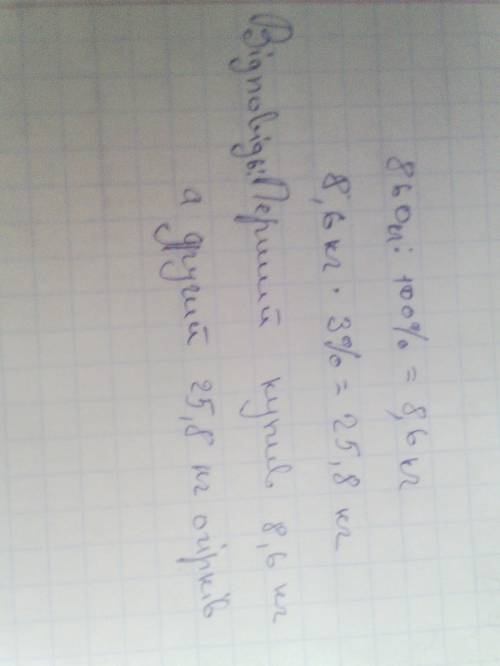 860кг: 100% = 8,6 кг
8,6 кг · 3% = 25,8 кг
Відповідь: Перший купив 8,6 кг
а другий 25,8 кг огірків